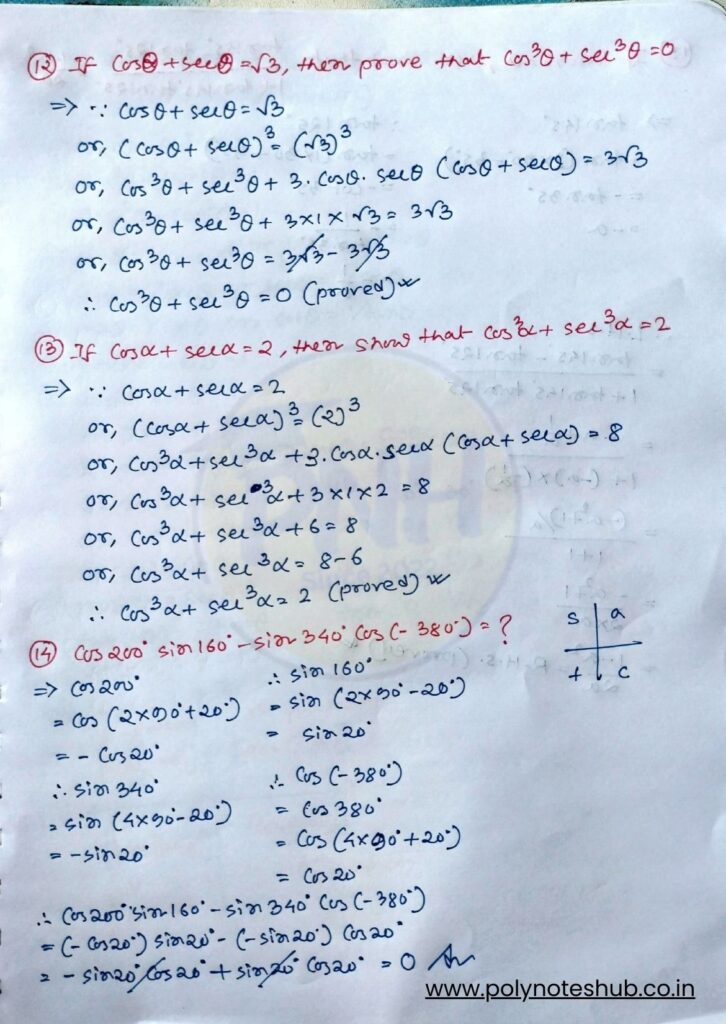 (12) If Cosθ + secθ = √3, then prove that Cos³θ + sec³θ = 0
⇒ ∵ Cosθ + secθ = √3
or, (Cosθ + secθ)³ = (√3)³
or, Cos³θ + sec³θ + 3. Cosθ. secθ (Cosθ + secθ) = 3√3
or, Cos³θ + sec³θ + 3×1×√3 = 3√3
or, Cos³θ + sec³θ = 3√3 - 3√3
∴ Cos³θ + sec³θ = 0 (proved)
(13) If Cosα + secα = 2, then show that Cos³α + sec³α = 2
⇒ ∵ Cosα + secα = 2
or, (Cosα + secα)³ = (2)³
or, Cos³α + sec³α + 3. Cosα. secα (Cosα + secα) = 8
or, Cos³α + sec³α + 3×1×2 = 8
or, Cos³α + sec³α + 6 = 8
or, Cos³α + sec³α = 8-6
∴ Cos³α + sec³α = 2 (proved)
(14) Cos200° sin160° - sin340° Cos(-380°) = ?
s a
t c
⇒ Cos200°
= Cos (2×90°+20°)
= - Cos20°
∴ sin160°
= sin (2×90°-20°)
= sin20°
∴ sin340°
= sin (4×90°-20°)
= -sin20°
∴ Cos (-380°)
= Cos380°
= Cos (4×90°+20°)
= Cos20°
∴ Cos200° sin160° - sin340° Cos(-380°)
= (-Cos20°) sin20° - (-sin20°) Cos20°
= - sin20° Cos20° + sin20° Cos20° = 0 An
www.polynoteshub.co.in